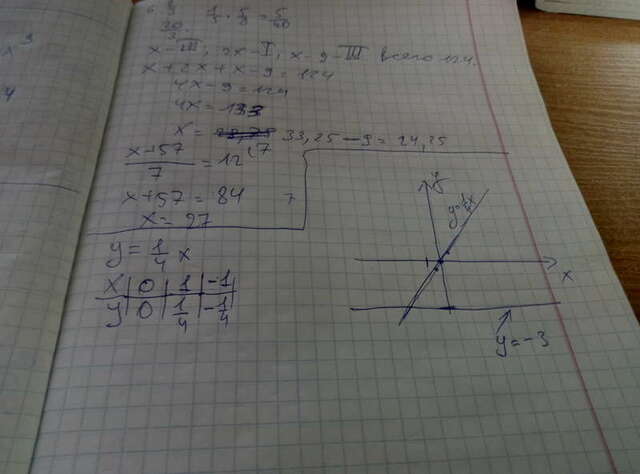 x - III, 2x - I, x - 9 - III всего 124.
x + 2x + x - 9 = 124
4x - 9 = 124
4x = 133
x = 33,25 - 9 = 24,25
x+57/7 = 12 | 7
x+57 = 84
x = 27
y = 1/4 x
x | 0 | 1 | -1
y | 0 | 1/4 | -1/4
y
y=1/4x
x
y=-3